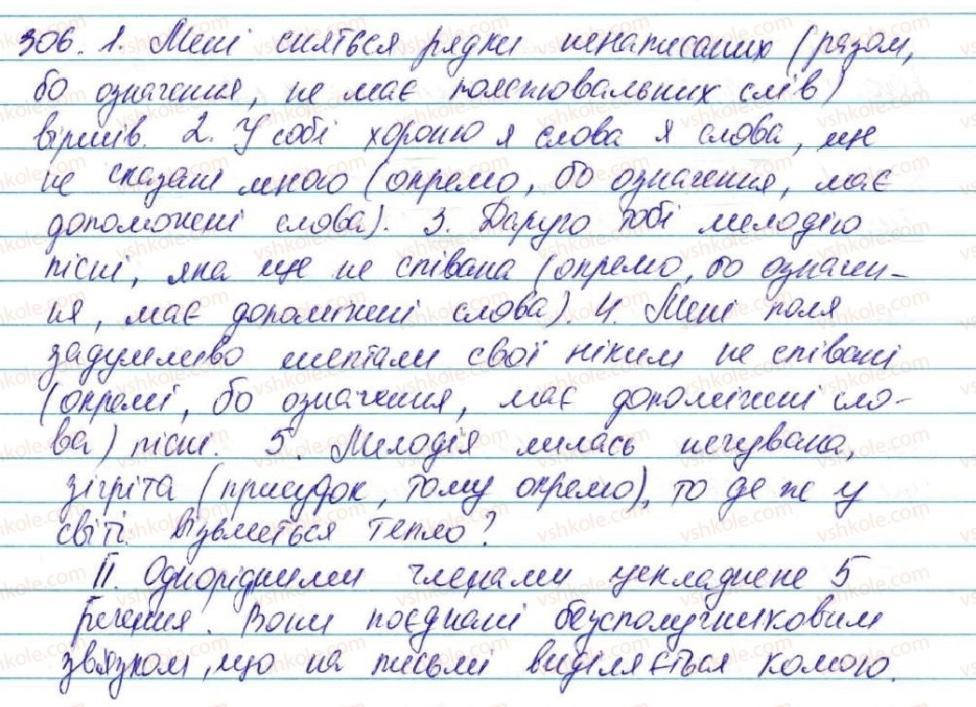 306. 1. Мені сняться рядки ненаписаних (разом,
бо означення, не має пояснювальних слів)
віршів. 2. У собі хороню я слова я слова, ще
не сказані мною (окремо, бо означення, має
допоможені слова). 3. Дарую тобі мелодію
пісні, яка ще не співана (окремо, бо означен-
ня, має допоміжні слова). 4. Мені поля
задумливо шептали свої ніким не співані
(окремі, бо означення, має допоміжні сло-
ва) пісні. 5. Мелодія лилась нечувана,
зігріта (присудок, тому окремо), то де же у
світі візьметься тепло?
ІІ. Однорідними членами ускладнене 5
речення. Вони поєднані безсполучниковим
зв'язком, що на письмі виділяється комою.